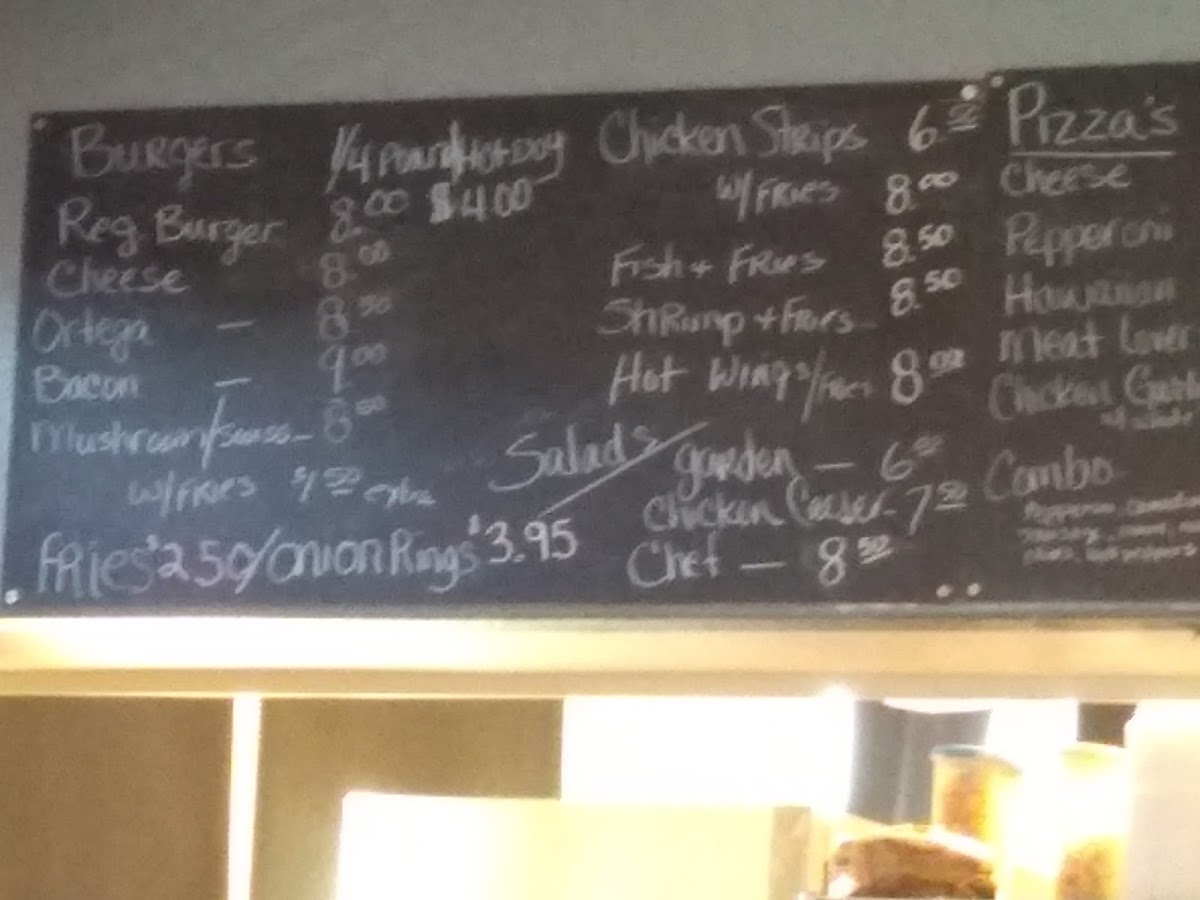 Burgers
1/4 Pound Hot Dog
$4.00
Reg. Burger 8.00
Cheese 8.00
Ortega — 8.50
Bacon — 9.00
Mushroom/Swiss — 8.50
w/Fries $1.50 extra
Fries $2.50/Onion Rings $3.95
Chicken Strips 6.50
w/Fries 8.00
Fish + Fries 8.50
Shrimp + Fries — 8.50
Hot Wings/Fries 8.00
Salads
garden — 6.50
Chicken Caeser — 7.50
Chef — 8.50
Pizza's
Cheese
Pepperoni
Hawaiian
Meat Lover
Chicken
Combo